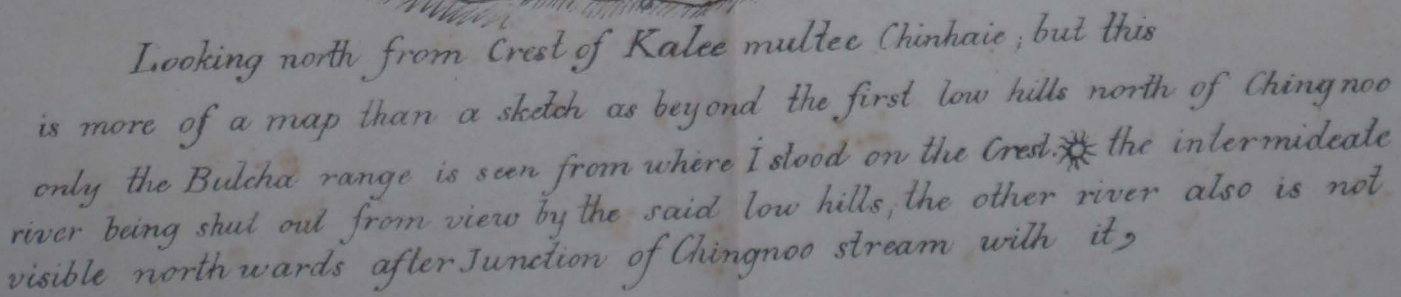 Looking north from Crest of Kalee multee Chinhaie; but this
is more of a map than a sketch as beyond the first low hills north of Chingnoo
only the Bulcha range is seen from where I stood on the Crest. the intermideate
river being shut out from view by the said low hills, the other river also is not
visible northwards after Junction of Chingnoo stream with it,